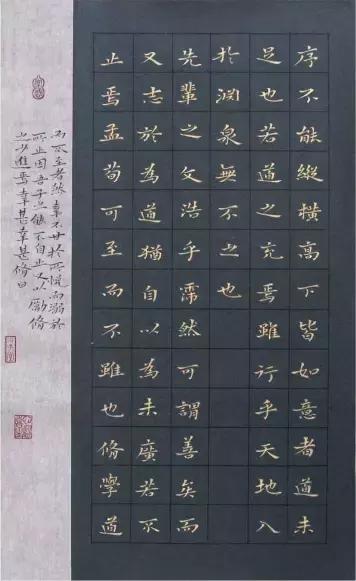 序不能縱橫高下皆如意者道未
足也若道之充焉雖行乎天地入
於淵泉無不之也
先輩之文浩乎霈然可謂善矣而
又志於為道猶自以為未廣若不
止焉孟荀可至而不雖也脩學道
而不至者然幸不甘於所悅而溺於
所止因吾子之能不自止又以勵脩
之少進焉幸甚幸甚脩白